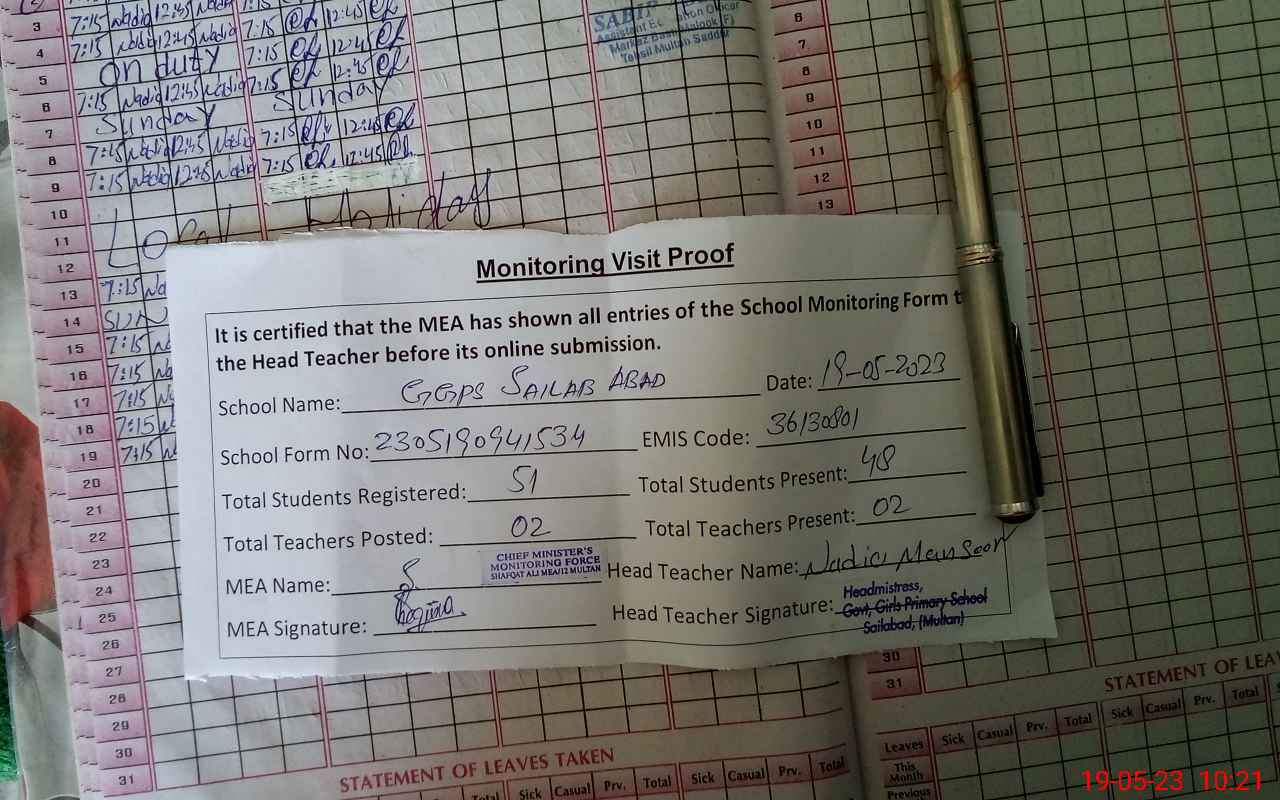 3 7:15 Nadia 12:45 Nadia 7:15 12:45
4 7:15 Nadia 12:45 Nadia 7:15 12:45
5 on duty 7:15 12:45
6 7:15 Nadia 12:45 Nadia 7:15 12:45
7 Sunday Sunday
8 7:15 Nadia 12:45 Nadia 7:15 12:45
9 7:15 Nadia 12:45 Nadia 7:15 12:45
10
11 Local Holiday
12
13 7:15 Na
14 SUN
15 7:15 Na
16 7:15 Na
17 7:15 Na
18 7:15 N
19 7:15 No
20
21
22
23
24
25
26
27
28
29
30
31
Assistant Education Officer
Markaz Basti Malook (F)
Tehsil Multan Saddar
6
7
8
9
10
11
12
13
Monitoring Visit Proof
It is certified that the MEA has shown all entries of the School Monitoring Form t
the Head Teacher before its online submission.
School Name: GGPS SAILAB ABAD Date: 19-05-2023
School Form No: 2305190941534 EMIS Code: 36130801
Total Students Registered: 51 Total Students Present: 48
Total Teachers Posted: 02 Total Teachers Present: 02
MEA Name: Head Teacher Name: Nadia Mansoor
CHIEF MINISTER'S
MONITORING FORCE
SHAFQAT ALI MEA/12 MULTAN
MEA Signature: Head Teacher Signature:
Headmistress,
Govt, Girls Primary School
Sailabad, (Multan)
30
31
STATEMENT OF LEAVES TAKEN
Total Sick Casual Prv. Total Sick Casual Prv. Total
STATEMENT OF LEA
Leaves Sick Casual Prv. Total Sick Casual Prv. Total
This
Month
Previous
19-05-23 10:21